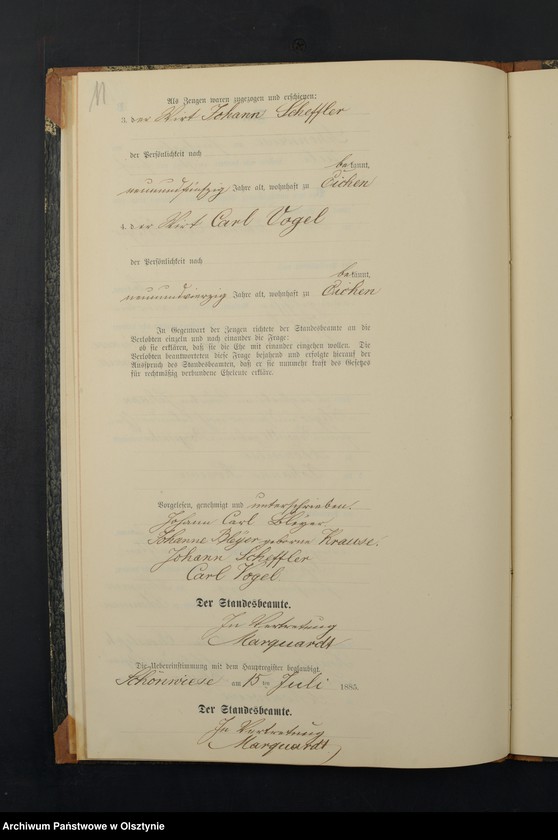 11
Als Zeugen waren zugezogen und erschienen:
3. der Wirt Johann Scheffler
der Persönlichkeit nach
bekannt,
neunundfünfzig Jahre alt, wohnhaft zu Eichen
4. der Wirt Carl Vogel
der Persönlichkeit nach
bekannt,
neunundvierzig Jahre alt, wohnhaft zu Eichen
In Gegenwart der Zeugen richtete der Standesbeamte an die
Verlobten einzeln und nach einander die Frage:
ob sie erklären, daß sie die Ehe mit einander eingehen wollen. Die
Verlobten beantworteten diese Frage bejahend und erfolgte hierauf der
Ausspruch des Standesbeamten, daß er sie nunmehr kraft des Gesetzes
für rechtmäßig verbundene Eheleute erkläre.
Vorgelesen, genehmigt und unterschrieben.
Johann Carl Bleyer.
Johanne Bleyer geborene Krause.
Johann Scheffler
Carl Vogel
Der Standesbeamte.
In Vertretung
Marquardt
Die Uebereinstimmung mit dem Hauptregister beglaubigt.
Schönwiese am 15 ten Juli 1885.
Der Standesbeamte.
In Vertretung
Marquardt
Archiwum Państwowe w Olsztynie